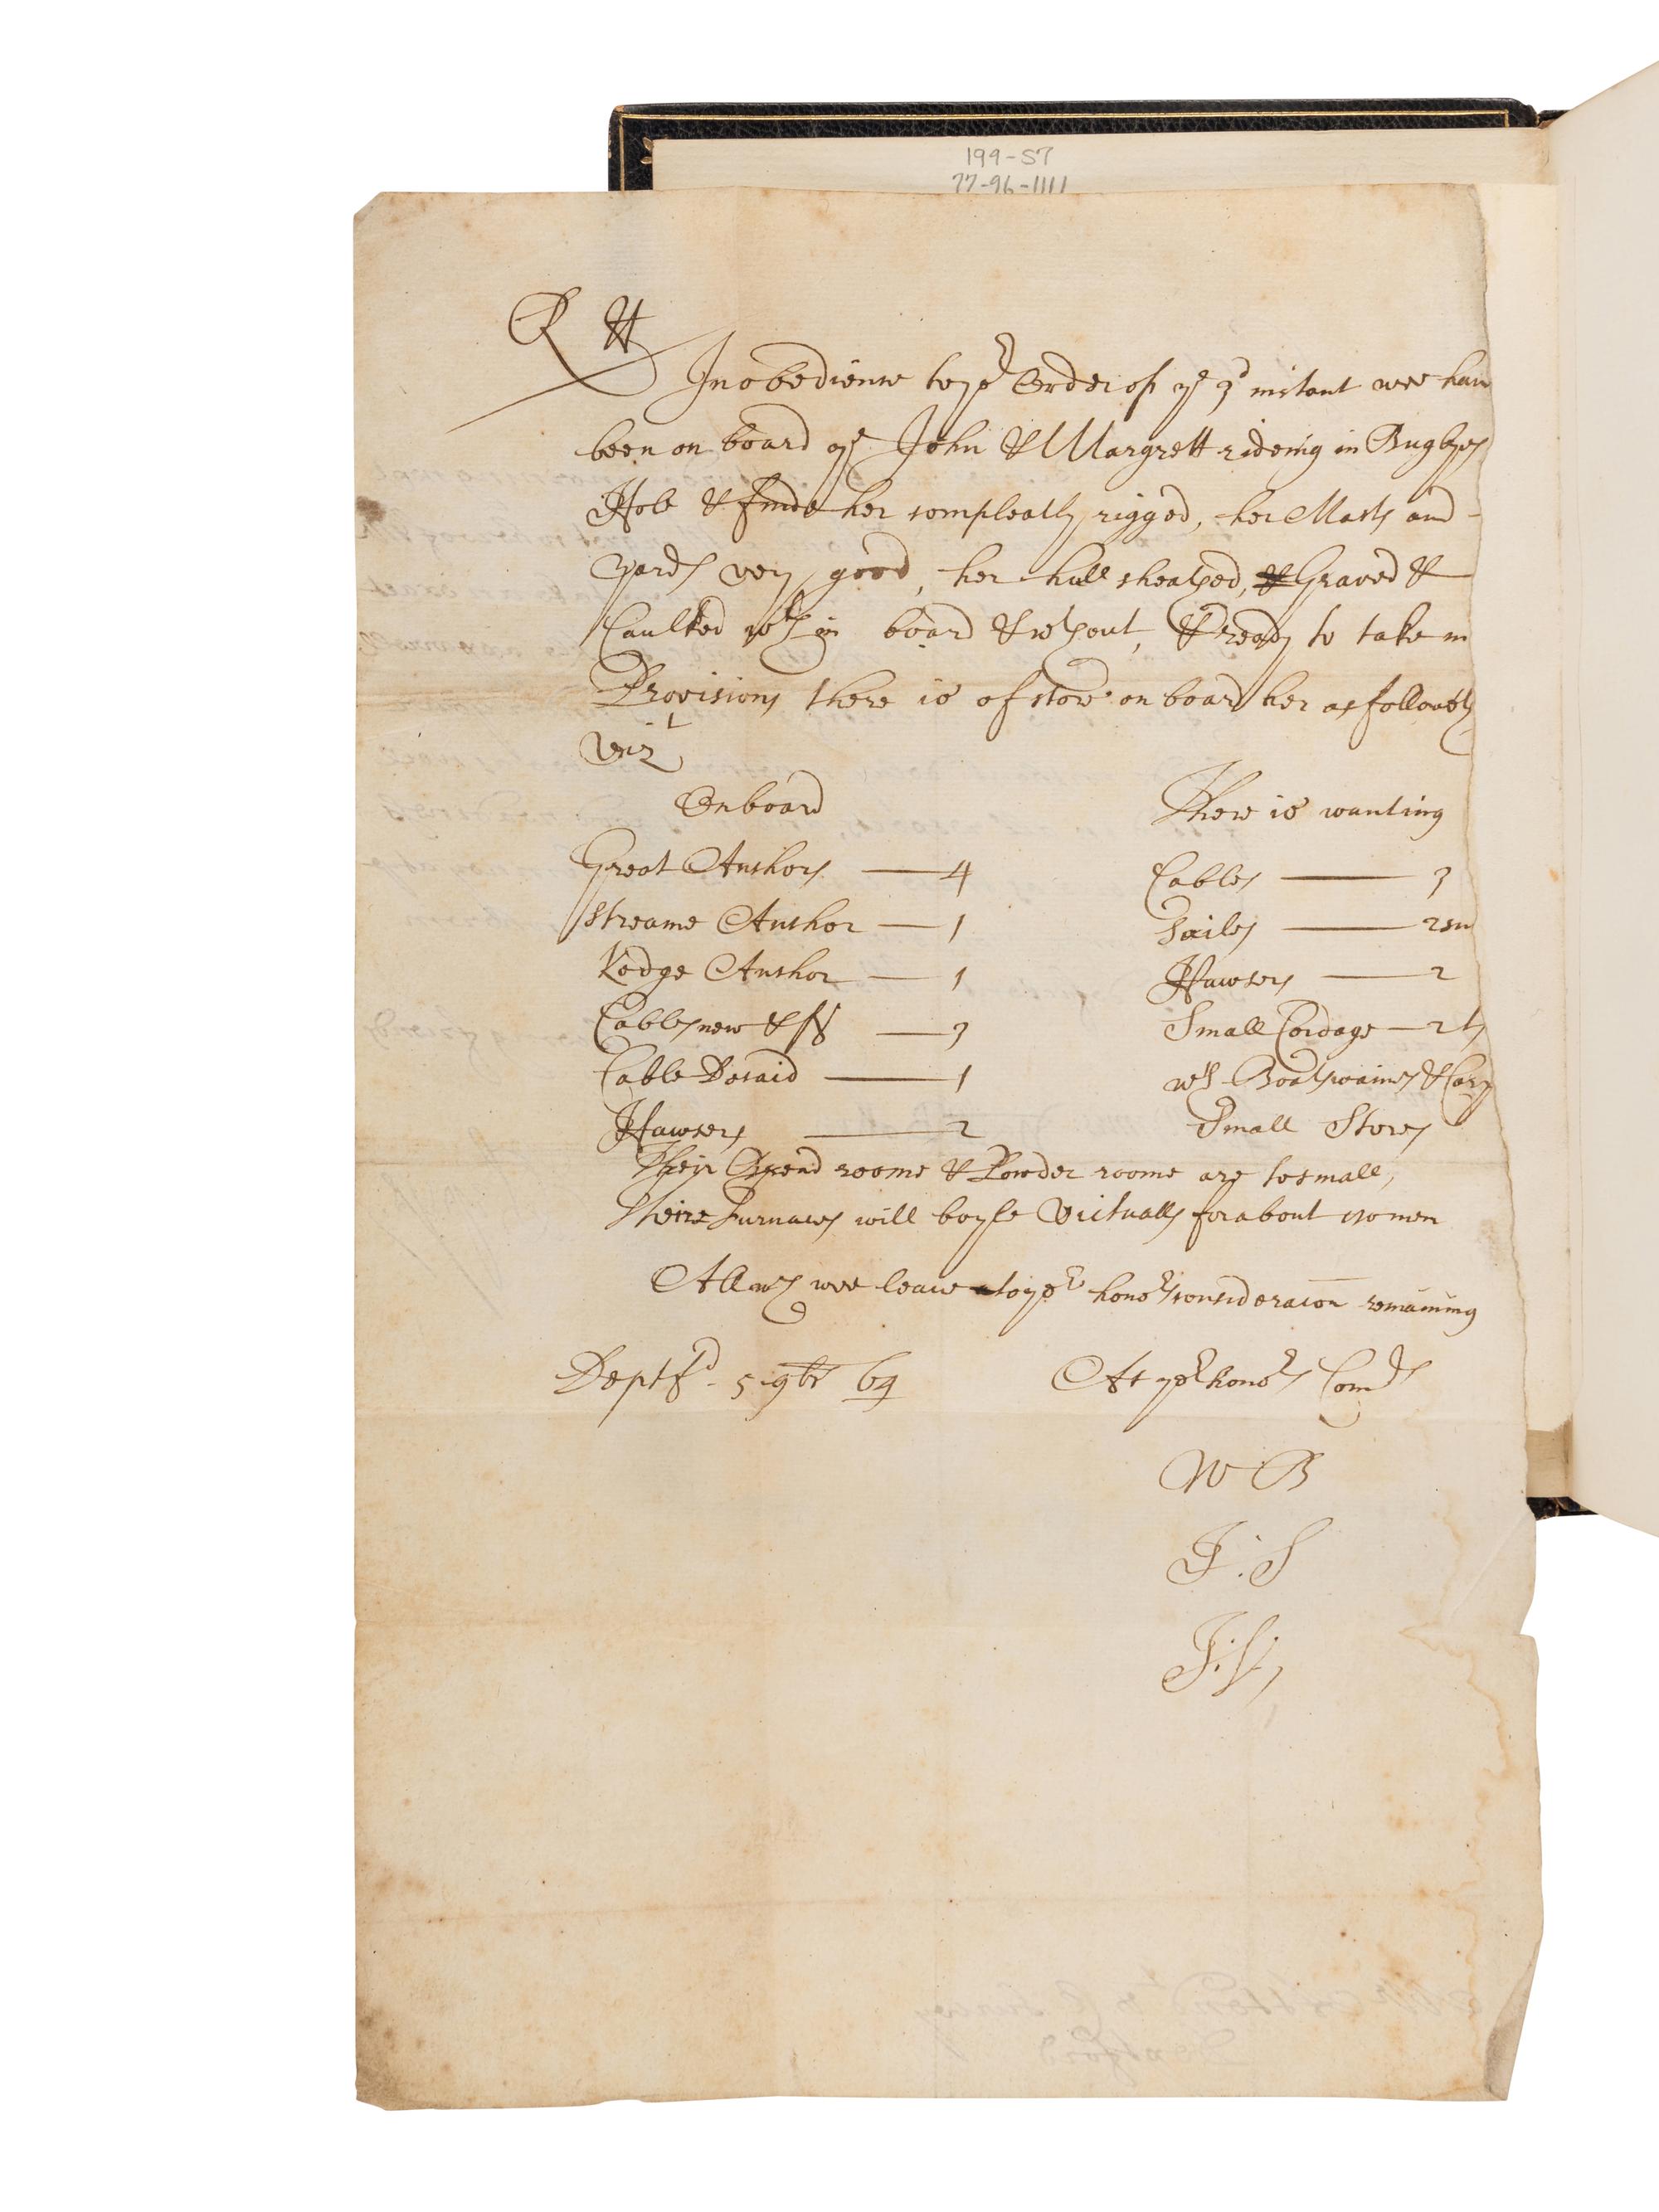 199-S7
77-96-1111
R H
In obedience to yor Order of ye 3d instant wee hav
been on board ye John & Margrett rideing in Bugbyes
Hole & finde her compleatly rigged, her Masts and
yards very good, her hull sheathed, & Graved &
Caulked wth in board & wthout, & ready to take in
Provisions there is of store on board her as followeth
vizt
Onboard There is wanting
Great Anchors — 4 Cables — 3
Streame Anchor — 1 Sailes —
Kedge Anchor — 1 Hawsers — 2
Cables new & — 3 Small Cordage — 2 t
Cable Decaid — 1 wth Boatswaines & Carp
Hawsers — 2 Small Stores
Their Bread roome & Powder roome are to small,
theire Furnaces will boyle victualls for about men
All wch wee leave to yor honors consideracon remaining
Deptfd 5 9br 64 At yor honors Comds
W B
J : S
J : S